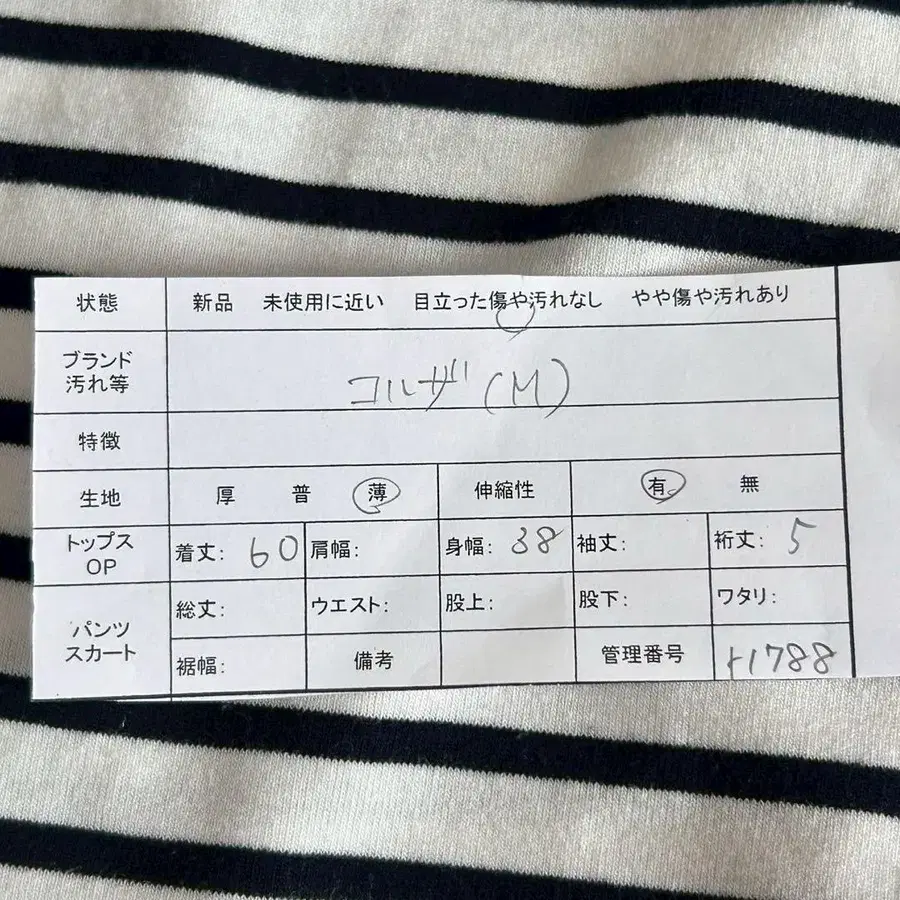 状態 新品 未使用に近い 目立った傷や汚れなし やや傷や汚れあり
ブランド
汚れ等
コルザ(M)
特徴
生地 厚 普 薄 伸縮性 有 無
トップス
OP
着丈: 60 肩幅: 身幅: 38 袖丈: 裄丈: 5
パンツ
スカート
総丈: ウエスト: 股上: 股下: ワタリ:
裾幅: 備考 管理番号 t1788